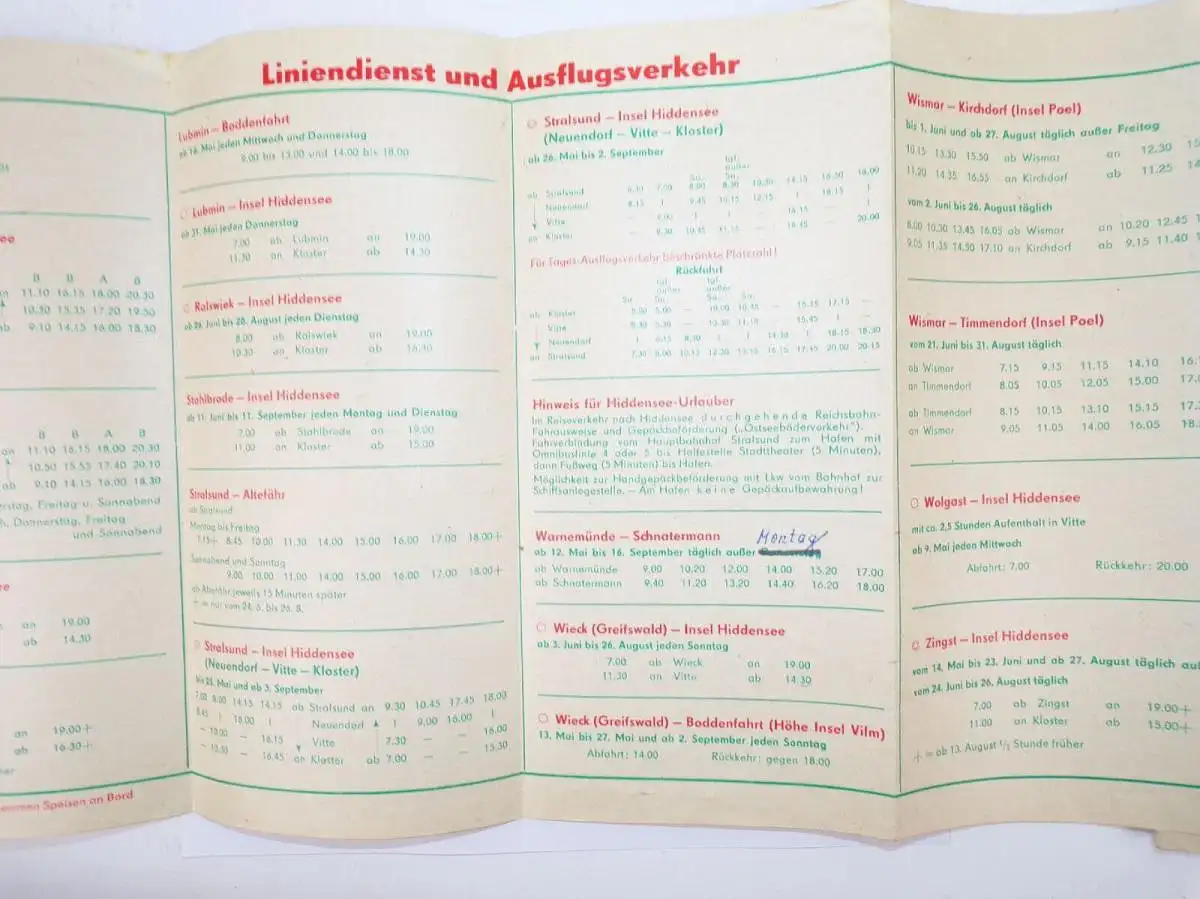 Liniendienst und Ausflugsverkehr
B B A B
11.10 16.15 18.00 20.30
10.30 15.35 17.20 19.50
ab 9.10 14.15 16.00 18.30
B B A B
an 11.10 16.15 18.00 20.30
10.50 15.55 17.40 20.10
ab 9.10 14.15 16.00 18.30
Freitag u. Sonnabend
Donnerstag, Freitag
und Sonnabend
19.00
ab 14.30
an 19.00+
ab 16.30+
Speisen an Bord
Lubmin – Boddenfahrt
ab 16. Mai jeden Mittwoch und Donnerstag
9.00 bis 13.00 und 14.00 bis 18.00
Lubmin – Insel Hiddensee
ab 31. Mai jeden Donnerstag
7.00 ab Lubmin an 19.00
11.30 an Kloster ab 14.30
Ralswiek – Insel Hiddensee
ab 26. Juni bis 28. August jeden Dienstag
8.00 ab Ralswiek an 19.00
10.30 an Kloster ab 16.30
Stahlbrode – Insel Hiddensee
ab 11. Juni bis 11. September jeden Montag und Dienstag
7.00 ab Stahlbrode an 19.00
11.00 an Kloster ab 15.00
Stralsund – Altefähr
ab Stralsund
Montag bis Freitag
7.15+ 8.45 10.00 11.30 14.00 15.00 16.00 17.00 18.00+
Sonnabend und Sonntag
9.00 10.00 11.00 14.00 15.00 16.00 17.00 18.00+
ab Altefähr jeweils 15 Minuten später
+ = nur vom 24. 6. bis 26. 8.
Stralsund – Insel Hiddensee
(Neuendorf – Vitte – Kloster)
bis 25. Mai und ab 3. September
7.00 8.00 14.15 14.15 ab Stralsund an 9.30 10.45 17.45 18.00
8.45 | 18.00 | Neuendorf | 9.00 16.00 |
– 10.00 – 16.15 Vitte 7.30 – – 16.00
– 10.30 – 16.45 an Kloster ab 7.00 – 15.30
Stralsund – Insel Hiddensee
(Neuendorf – Vitte – Kloster)
ab 26. Mai bis 2. September
tgl.
außer
So. So.
ab Stralsund 6.30 7.00 8.00 8.30 10.30 14.15 16.30 18.00
Neuendorf 8.15 | 9.45 10.15 12.15 | 18.15 |
Vitte – 9.00 | | – 16.15 – |
an Kloster – 9.30 10.45 11.15 – 16.45 20.00
Für Tages-Ausflugsverkehr beschränkte Platzzahl!
Rückfahrt
tgl. tgl.
außer außer
So. So. So. So.
ab Kloster 5.00 5.00 – 10.00 10.45 – 15.15 17.15 –
Vitte 5.30 5.30 – 10.30 11.15 – 15.45 | –
Neuendorf | 6.15 8.30 | | 14.30 | 18.15 18.30
an Stralsund 7.30 8.00 10.15 12.30 13.15 16.15 17.45 20.00 20.15
Hinweis für Hiddensee-Urlauber
Im Reiseverkehr nach Hiddensee durchgehende Reichsbahn-
Fahrausweise und Gepäckbeförderung („Ostseebäderverkehr“).
Fahrverbindung vom Hauptbahnhof Stralsund zum Hafen mit
Omnibuslinie 4 oder 5 bis Haltestelle Stadttheater (5 Minuten),
dann Fußweg (5 Minuten) bis Hafen.
Möglichkeit zur Handgepäckbeförderung mit Lkw vom Bahnhof zur
Schiffsanlegestelle. – Am Hafen keine Gepäckaufbewahrung!
Warnemünde – Schnatermann Montag
ab 12. Mai bis 16. September täglich außer
ab Warnemünde 9.00 10.20 12.00 14.00 15.20 17.00
ab Schnatermann 9.40 11.20 13.20 14.40 16.20 18.00
Wieck (Greifswald) – Insel Hiddensee
ab 3. Juni bis 26. August jeden Sonntag
7.00 ab Wieck an 19.00
11.30 an Vitte ab 14.30
Wieck (Greifswald) – Boddenfahrt (Höhe Insel Vilm)
13. Mai bis 27. Mai und ab 2. September jeden Sonntag
Abfahrt: 14.00 Rückkehr: gegen 18.00
Wismar – Kirchdorf (Insel Poel)
bis 1. Juni und ab 27. August täglich außer Freitag
10.15 13.30 15.50 ab Wismar an 12.30
11.20 14.35 16.55 an Kirchdorf ab 11.25
vom 2. Juni bis 26. August täglich
8.00 10.30 13.45 16.05 ab Wismar an 10.20 12.45
9.05 11.35 14.50 17.10 an Kirchdorf ab 9.15 11.40
Wismar – Timmendorf (Insel Poel)
vom 21. Juni bis 31. August täglich
ab Wismar 7.15 9.15 11.15 14.10
an Timmendorf 8.05 10.05 12.05 15.00
ab Timmendorf 8.15 10.15 13.10 15.15
an Wismar 9.05 11.05 14.00 16.05
Wolgast – Insel Hiddensee
mit ca. 2,5 Stunden Aufenthalt in Vitte
ab 9. Mai jeden Mittwoch
Abfahrt: 7.00 Rückkehr: 20.00
Zingst – Insel Hiddensee
vom 14. Mai bis 23. Juni und ab 27. August täglich
vom 24. Juni bis 26. August täglich
7.00 ab Zingst an 19.00+
11.00 an Kloster ab 15.00+
+ = ab 13. August ½ Stunde früher